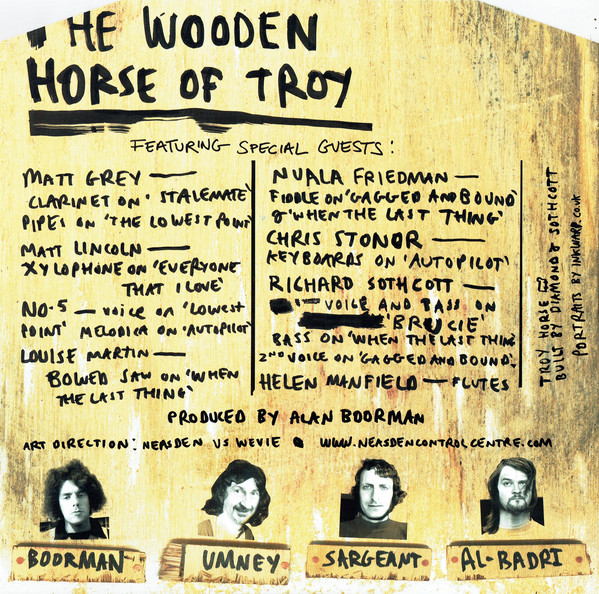 THE WOODEN
HORSE OF TROY
FEATURING SPECIAL GUESTS:
MATT GREY —
CLARINET ON 'STALEMATE'
PIPES ON 'THE LOWEST POINT'
MATT LINCOLN —
XYLOPHONE ON 'EVERYONE
THAT I LOVE'
NO-5 — VOICE ON 'LOWEST
POINT' MELODICA ON 'AUTOPILOT'
LOUISE MARTIN —
BOWED SAW ON 'WHEN
THE LAST THING'
NUALA FRIEDMAN —
FIDDLE ON 'GAGGED AND BOUND'
& 'WHEN THE LAST THING'
CHRIS STONOR —
KEYBOARDS ON 'AUTOPILOT'
RICHARD SOTHCOTT —
VOICE AND BASS ON
'BRUCIE'
BASS ON 'WHEN THE LAST THING'
2ND VOICE ON 'GAGGED AND BOUND'
HELEN MANFIELD — FLUTES
TROY HORSE
BUILT BY DIAMOND & SOTHCOTT
PORTRAITS BY INKWARP.co.uk
PRODUCED BY ALAN BOORMAN
ART DIRECTION: NEASDEN VS WEVIE WWW.NEASDENCONTROLCENTRE.COM
BOORMAN
UMNEY
SARGEANT
AL-BADRI